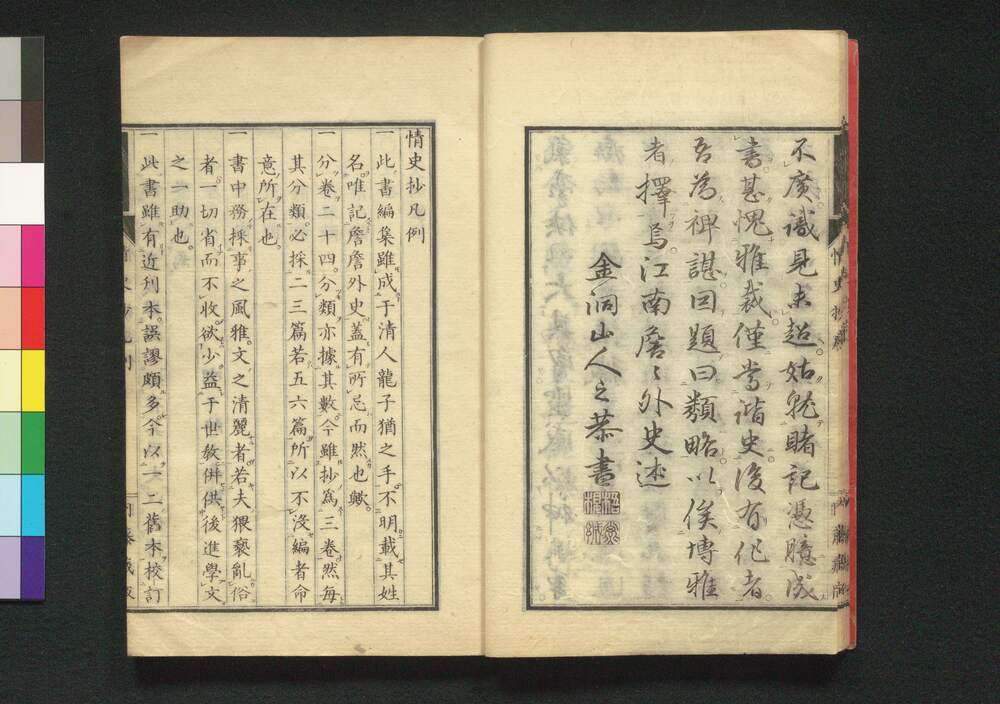 不廣識見未超姑就睹記憑臆成
書甚愧雅裁僅當諧史後有作者
吾為裨諶因題曰類略以俟博雅
者擇焉江南詹〻外史述
金洞山人之恭書
情史抄凡例
一此書編集雖成于清人龍子猶之手不明載其姓
名唯記詹詹外史蓋有所忌而然也歟
一分卷二十四分類亦據其數今雖抄爲三卷然每
其分類必採二三篇若五六篇所以不沒編者命
意所在也
一書中務採事之風雅文之清麗者若夫猥褻亂俗
者一切省而不收欲少益于世敎併供後進學文
之一助也
一此書雖有近刋本誤謬頗多今以一二舊本校訂